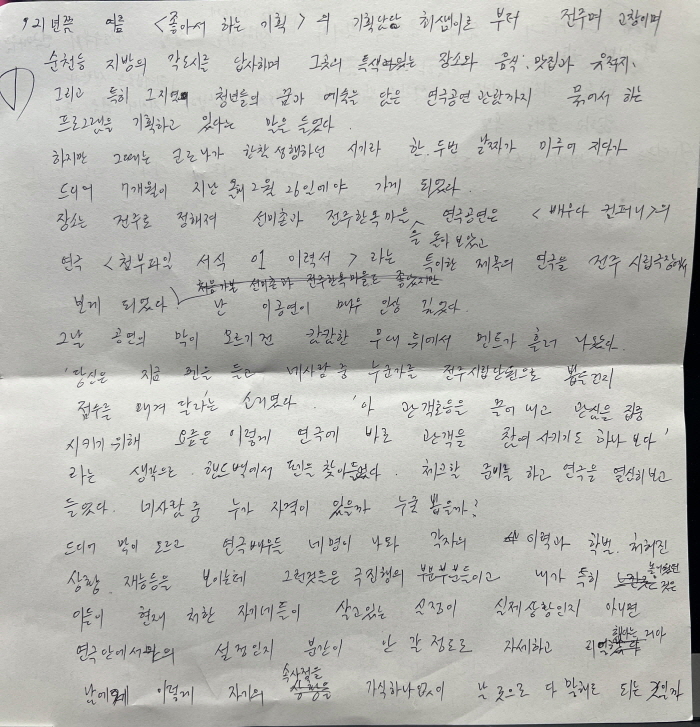 21년쯤 여름 <좋아서 하는 기획>의 기획단장 최샘이로 부터 전주며 고창이며
순천등 지방의 각도시를 답사하며 그곳의 특색있는 장소와 음식, 맛집과 유적지,
①
그리고 특히 그지역 청년들의 꿈과 예술을 담은 연극공연 관람까지 묶어서 하는
프로그램을 기획하고 있다는 말을 들었다.
하지만 그때는 코로나가 한창 성행하던 시기라 한, 두번 날짜가 미루어 지다가
드디어 7개월이 지난 올해 2월 26일에야 가게 되었다.
장소는 전주로 정해져 선미촌과 전주한옥마을 연극공연은 <배우다 컴퍼니>의
을 돌아 보았고
연극 <첨부파일 서식 01 이력서> 라는 특이한 제목의 연극을 전주 시립극장에서
처음가본 선미촌과 전주한옥마을도 좋았지만
보게 되었다 난 이공연이 매우 인상 깊었다.
그날 공연의 막이 오르기전 캄캄한 무대 뒤에서 멘트가 흘러 나왔다.
'당신은 지금 펜을 들고 네사람 중 누군가를 전주시립단원으로 뽑을건지
점수를 매겨 달라'는 소리였다. '아 관객호응을 끌어 내고 관심을 집중
시키기 위해 요즘은 이렇게 연극에 바로 관객을 참여 시키기도 하나 보다'
라는 생각으로 핸드백에서 펜을 찾아들었다. 체크할 준비를 하고 연극을 열심히 보고
들었다. 네사람 중 누가 자격이 있을까 누굴 뽑을까?
드디어 막이 오르고 연극배우들 네명이 나와 각자의 이력과 학벌, 처해진
상황, 재능등을 보이는데 그런것들은 극진행의 부분부분들이고 내가 특히 놀라웠던 것은
이들이 현재 처한 자기네들이 살고있는 실정이 실제상황인지 아니면
연극안에서만의 설정인지 분간이 안 갈 정도로 자세하고
속사정을
이렇게 자기의 가식하나없이 날 것으로 다 밝혀도 되는 것일까